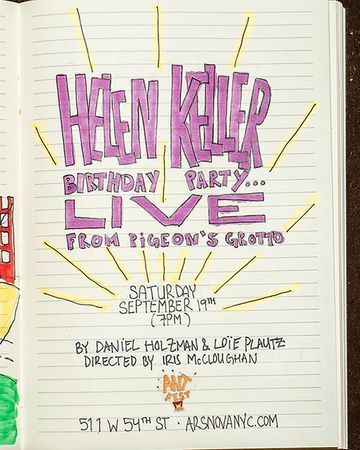 HELEN KELLER
BIRTHDAY PARTY...
LIVE
FROM PIGEON'S GROTTO
SATURDAY
SEPTEMBER 19TH
(7PM)
BY DANIEL HOLZMAN & LOÏE PLAUTZ
DIRECTED BY IRIS McCLOUGHAN
ANT
FEST
511 W 54TH ST · ARSNOVANYC.COM